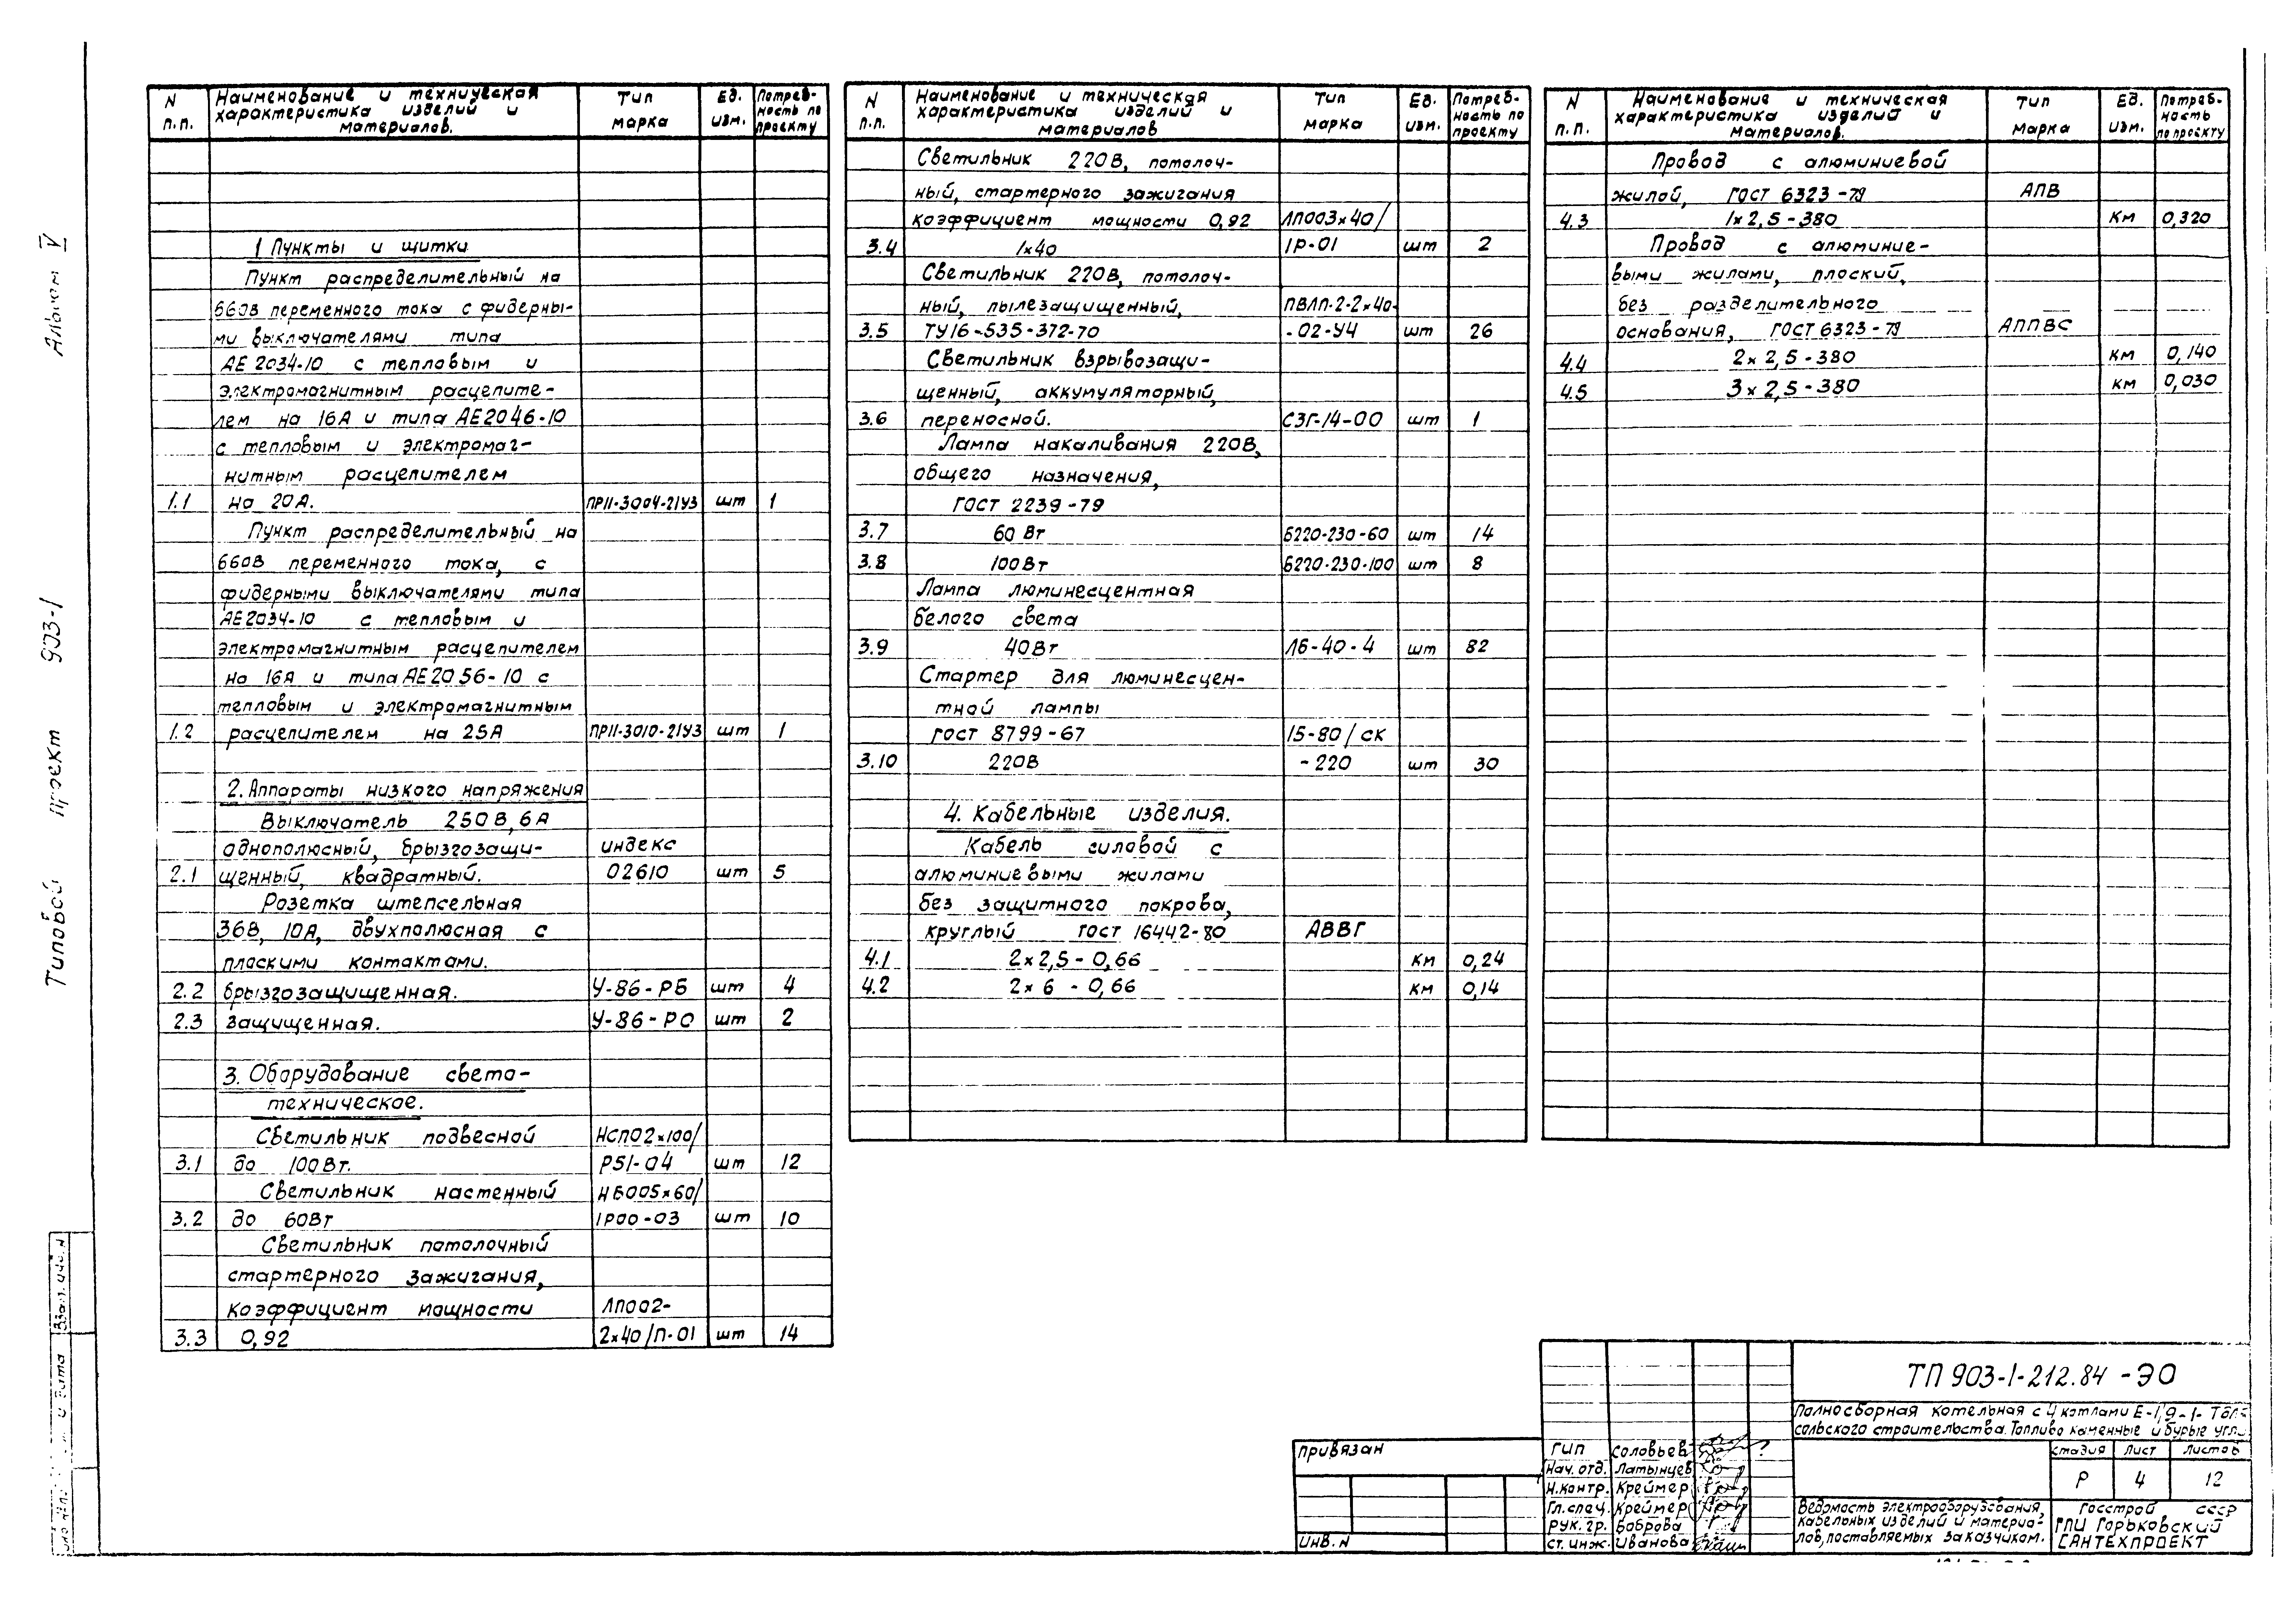 Альбом V
Типовой проект 903-1
N п.п. Наименование и техническая характеристика изделий и материалов. Тип марка Ед. изм. Потребность по проекту
1 Пункты и щитки
Пункт распределительный на
660В переменного тока с фидерны-
ми выключателями типа
АЕ 2034-10 с тепловым и
электромагнитным расцепите-
лем на 16А и типа АЕ2046-10
с тепловым и электромаг-
нитным расцепителем
1.1 на 20А. ПР11-3004-21У3 шт 1
Пункт распределительный на
660В переменного тока, с
фидерными выключателями типа
АЕ2034-10 с тепловым и
электромагнитным расцепителем
на 16А и типа АЕ2056-10 с
тепловым и электромагнитным
1.2 расцепителем на 25А ПР11-3010-21У3 шт 1
2. Аппараты низкого напряжения
Выключатель 250В, 6А
однополюсный, брызгозащи- индекс
2.1 щенный, квадратный. 02610 шт 5
Розетка штепсельная
36В, 10А, двухполюсная с
плоскими контактами.
2.2 брызгозащищенная. У-86-РБ шт 4
2.3 защищенная. У-86-РО шт 2
3. Оборудование свето-
техническое.
Светильник подвесной НСП02×100/
3.1 до 100Вт. Р51-04 шт 12
Светильник настенный НБ005×60/
3.2 до 60Вт 1Р00-03 шт 10
Светильник потолочный
стартерного зажигания,
коэффициент мощности ЛП002-
3.3 0,92 2×40/П-01 шт 14
N п.п. Наименование и техническая характеристика изделий и материалов Тип марка Ед. изм. Потребность по проекту
Светильник 220В, потолоч-
ный, стартерного зажигания
коэффициент мощности 0,92 ЛП003×40/
3.4 1×40 1Р-01 шт 2
Светильник 220В, потолоч-
ный, пылезащищенный, ПВЛП-2-2×40-
3.5 ТУ16-535-372-70 -02-У4 шт 26
Светильник взрывозащи-
щенный, аккумуляторный,
3.6 переносной. СЗГ-14-00 шт 1
Лампа накаливания 220В,
общего назначения,
ГОСТ 2239-79
3.7 60 Вт Б220-230-60 шт 14
3.8 100Вт Б220-230-100 шт 8
Лампа люминесцентная
белого света
3.9 40Вт ЛБ-40-4 шт 82
Стартер для люминесцен-
тной лампы
ГОСТ 8799-67 15-80/СК
3.10 220В -220 шт 30
4. Кабельные изделия.
Кабель силовой с
алюминиевыми жилами
без защитного покрова,
круглый ГОСТ 16442-80 АВВГ
4.1 2×2,5-0,66 км 0,24
4.2 2×6 -0,66 км 0,14
N п.п. Наименование и техническая характеристика изделий и материалов. Тип марка Ед. изм. Потребность по проекту
Провод с алюминиевой
жилой, ГОСТ 6323-79 АПВ
4.3 1×2,5-380 км 0,320
Провод с алюминие-
выми жилами, плоский,
без разделительного
основания, ГОСТ6323-79 АППВС
4.4 2×2,5-380 км 0,140
4.5 3×2,5-380 км 0,030
Взам. инв. N
и дата
Привязан
Инв. N
ГИП Соловьев
Нач. отд. Латынцев
Н.контр. Креймер
Гл.спец. Креймер
Рук. гр. Боброва
Ст. инж. Иванова
ТП 903-1-212.84 -ЭО
Полносборная котельная с 4 котлами Е-1/9-1- для
сельского строительства. Топливо каменные и бурые угли
стадия лист листов
Р 4 12
Ведомость электрооборудования,
кабельных изделий и материа-
лов, поставляемых заказчиком.
Госстрой СССР
ГПИ Горьковский
САНТЕХПРОЕКТ